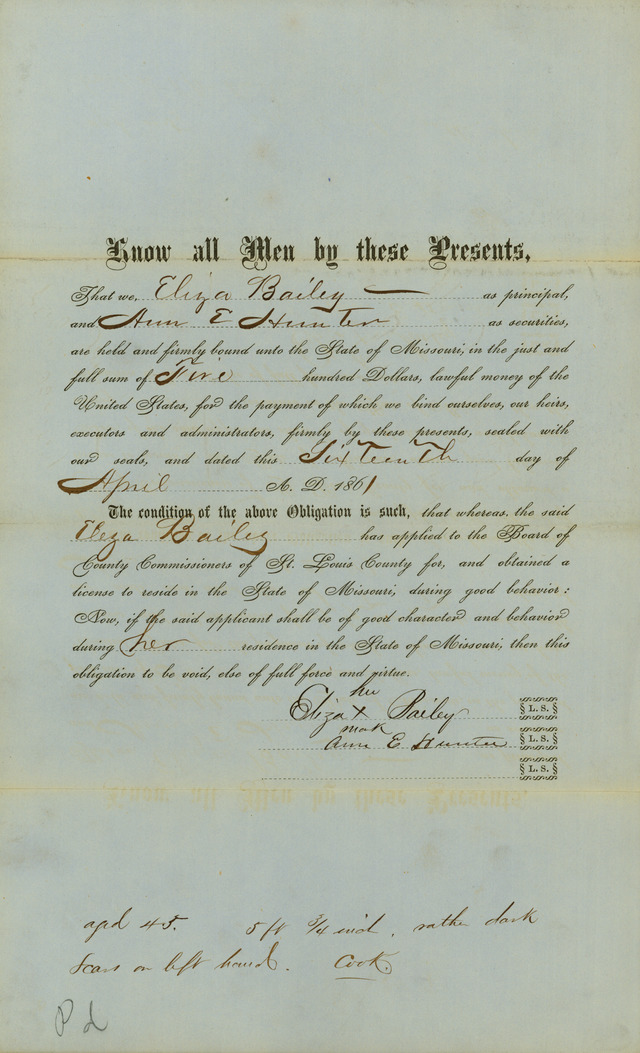 Know all Men by these Presents,
That we, Eliza Bailey as principal,
and Ann E Hunter as securities,
are held and firmly bound unto the State of Missouri, in the just and
full sum of Five hundred Dollars, lawful money of the
United States, for the payment of which we bind ourselves, our heirs,
executors and administrators, firmly by these presents, sealed with
our seals, and dated this Sixteenth day of
April A. D. 1861
The condition of the above Obligation is such, that whereas, the said
Eliza Bailey has applied to the Board of
County Commissioners of St. Louis County for, and obtained a
license to reside in the State of Missouri, during good behavior:
Now, if the said applicant shall be of good character and behavior
during her residence in the State of Missouri, then this
obligation to be void, else of full force and virtue.
her
Eliza X Bailey § L. S. §
mark
Ann E. Hunter § L. S. §
§ L. S. §
aged 45. 5 ft 3/4 inch, rather dark
Scars on left hand. Cook.
Pd